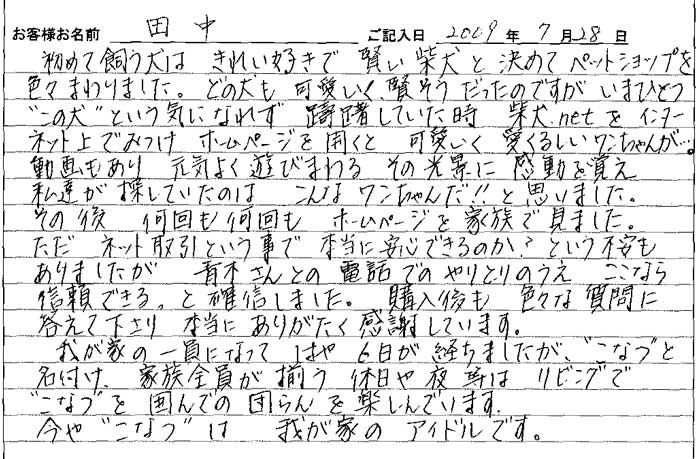 お客様お名前 田中 ご記入日 2009 年 7 月 28 日
初めて飼う犬は きれい好きで 賢い柴犬と決めてペットショップを
色々まわりました。どの犬も可愛いく、賢そうだったのですがいまひとつ
"この犬"という気になれず 躊躇していた時 柴犬.netをインター
ネット上でみつけ ホームページを開くと 可愛いく 愛くるしいワンちゃんが…。
動画もあり 元気よく遊びまわる その光景に 感動を覚え
私達が探していたのは こんなワンちゃんだ!!と思いました。
その後 何回も何回も ホームページを家族で見ました。
ただ ネット取引という事で 本当に安心できるのか?という不安も
ありましたが 青木さんとの電話でのやりとりのうえ ここなら
信頼できる。と確信しました。購入後も 色々な質問に
答えて下さり 本当にありがたく感謝しています。
我が家の一員になって はや 6日が経ちましたが、"こなつ"と
名付け、家族全員が揃う 休日や夜等は リビングで
"こなつ"を囲んでの団らんを楽しんでいます。
今や"こなつ"は 我が家のアイドルです。